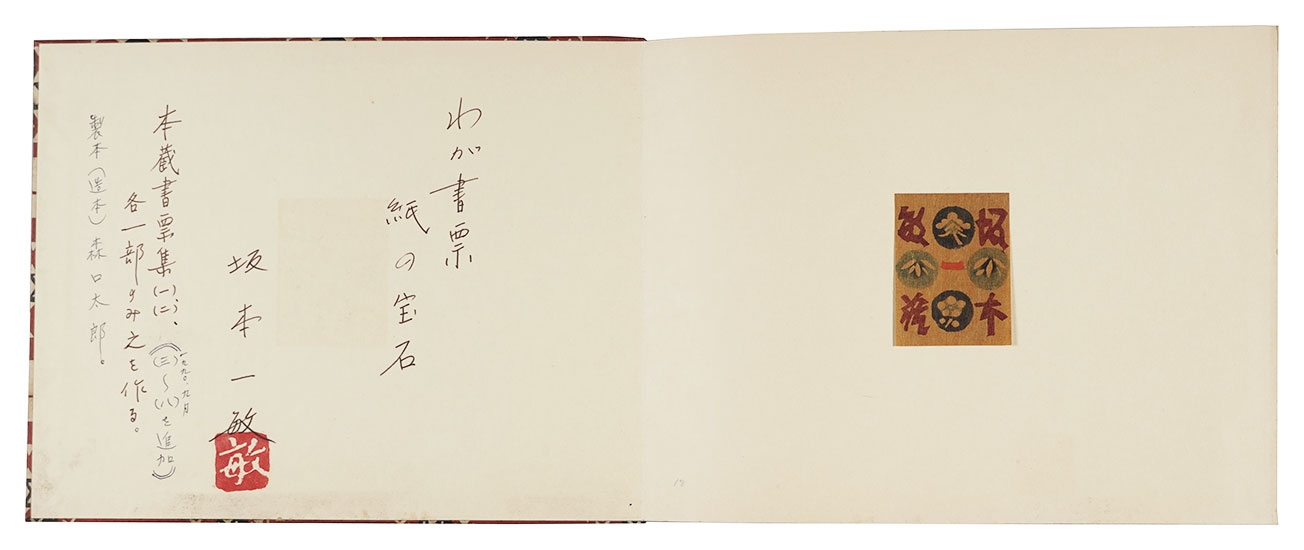 わが書票
紙の宝石
坂本一敏
敏
本蔵書票集(一)(二)、《(三)〜(八)を追加》
一九九〇、九月
各一部のみ之を作る。
製本(造本)森口太郎。
坂本
一
敏蔵